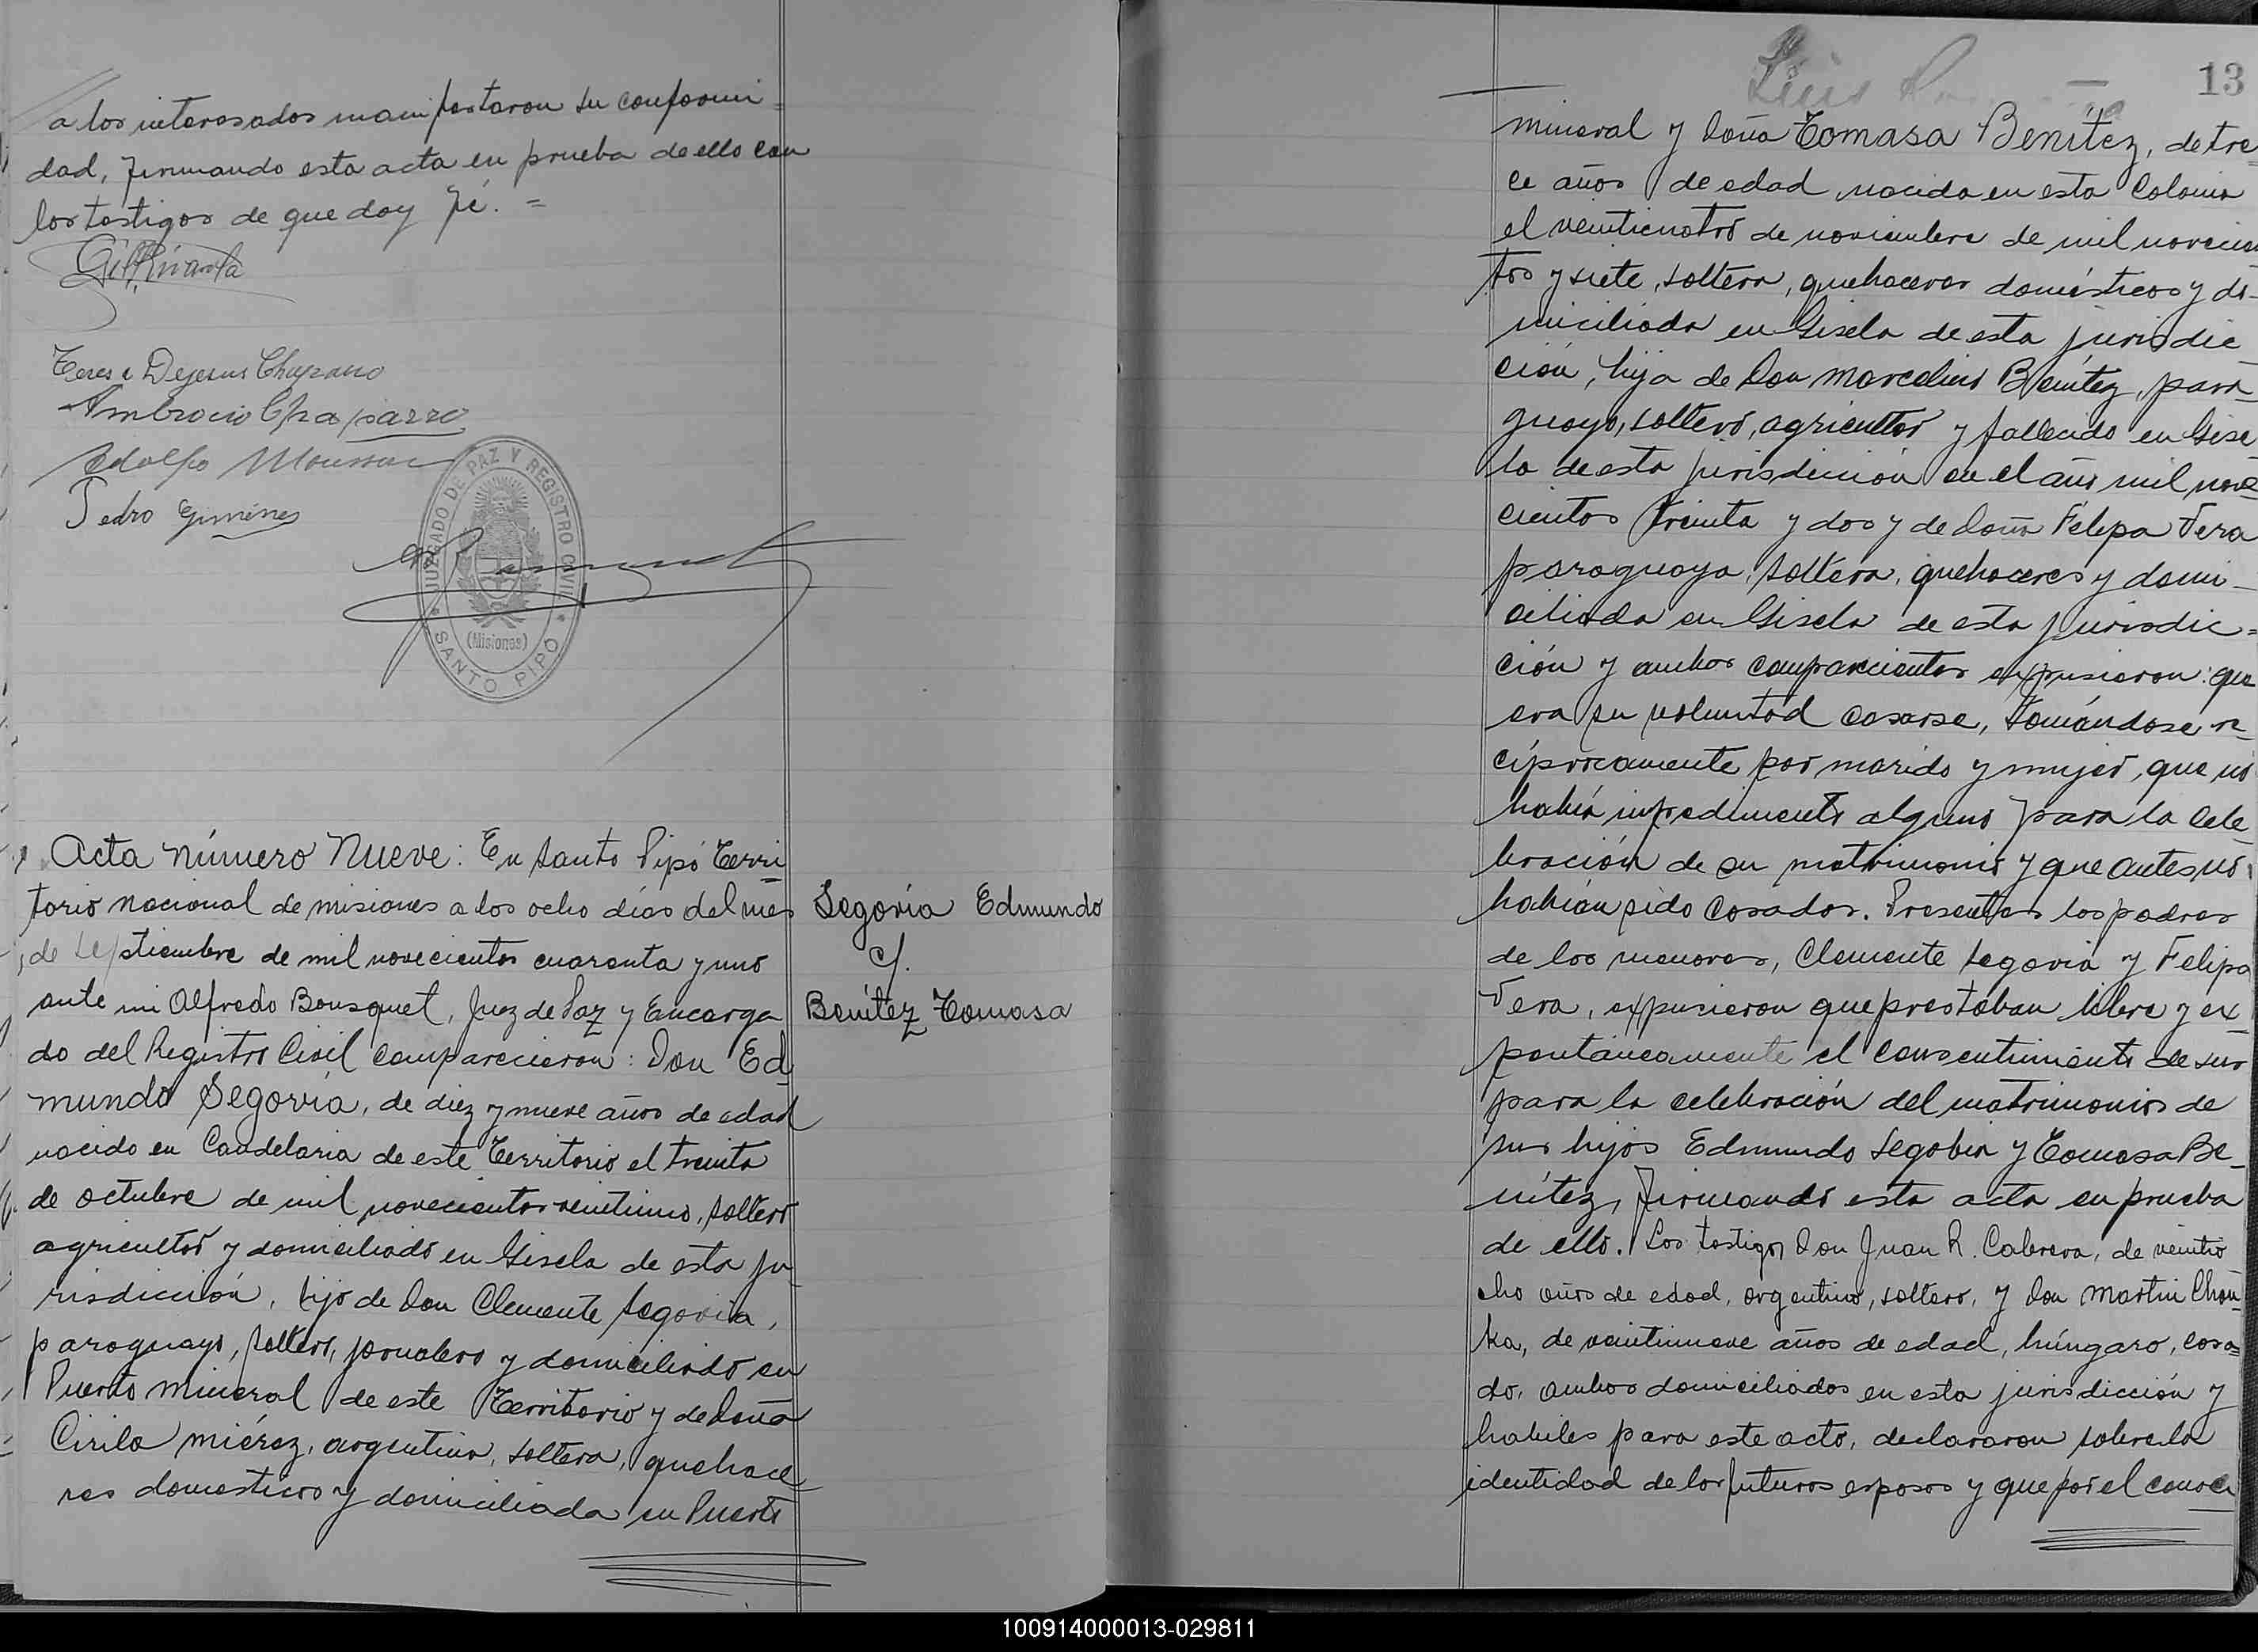 a los interesados manifestaron su conformi=
dad, firmando esta acta en prueba de ello con
los testigos de que doy fé. =
Ambrocio Chaparro
Adolfo
Pedro Gimenes
JUZGADO DE PAZ Y REGISTRO CIVIL
(Misiones)
SANTO PIPÓ
Acta número Nueve: En Santo Pipó Terri
torio nacional de misiones a los ocho días del mes
de septiembre de mil novecientos cuarenta y uno
ante mi Alfredo Bousquet, Juez de Paz y Encarga
do del Registro Civil comparecieron: Don Ed
mundo Segovia, de diez y nueve años de edad
nacido en Candelaria de este Territorio el treinta
de octubre de mil novecientos veintiuno, soltero
agricultor y domiciliado en Gisela de esta ju
risdicción, hijo de Don Clemente Segovia,
paraguayo, soltero, jornalero y domiciliado en
Puerto mineral de este Territorio y de Doña
Cirila miérez, argentina, soltera, quehace
res domesticos y domiciliada en Puerto
Segovia Edmundo
c/.
Benítez Tomasa
13
mineral y Doña Tomasa Benítez, de tre=
ce años de edad, nacida en esta Colonia
el veinticuatro de noviembre de mil novecien
tos y siete, soltera, quehaceres domésticos y do-
miciliada en Gisela de esta jurisdic
ción, hija de Don Marcelino Benítez, para
guayo, soltero, agricultor y fallecido en Gise
la de esta jurisdicción en el año mil nove
cientos treinta y dos y de Doña Felipa Vera
paraguaya, soltera, quehaceres y domi-
ciliada en Gisela de esta jurisdic=
ción y ambos comparecientes expusieron: que
era su voluntad casarse, tomándose re
cíprocamente por marido y mujer, que no
había impedimento alguno para la cele
bración de su matrimonio y que antes no
habían sido casados. Presentes los padres
de los menores, Clemente Segovia y Felipa
Vera, expusieron que prestaban libre y ex
pontáneamente el consentimiento de sus
para la celebración del matrimonio de
sus hijos Edmundo Segobia y Tomasa Be-
nítez, firmando esta acta en prueba
de ello. Los testigos Don Juan R. Cabrera, de veintio
cho años de edad, argentino, soltero, y Don Martin Chou-
ka, de veintinueve años de edad, húngaro, casa=
do, ambos domiciliados en esta jurisdicción y
habiles para este acto, declararon sobre la
identidad de los futuros esposos y que por el conoci
100914000013-029811